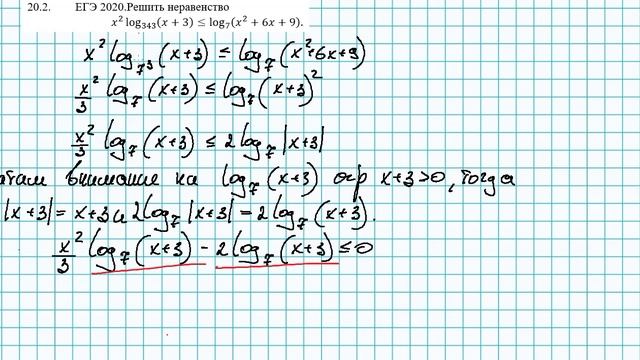 20.2. ЕГЭ 2020.Решить неравенство
x² log₃₄₃(x + 3) ≤ log₇(x² + 6x + 9).
x² log₇³(x+3) ≤ log₇(x²+6x+9)
x²/3 log₇(x+3) ≤ log₇(x+3)²
x²/3 log₇(x+3) ≤ 2log₇|x+3|
внимание на log₇(x+3) огр x+3>0, тогда
|x+3| = x+3 и 2log₇|x+3| = 2log₇(x+3).
x²/3 log₇(x+3) - 2log₇(x+3) ≤ 0